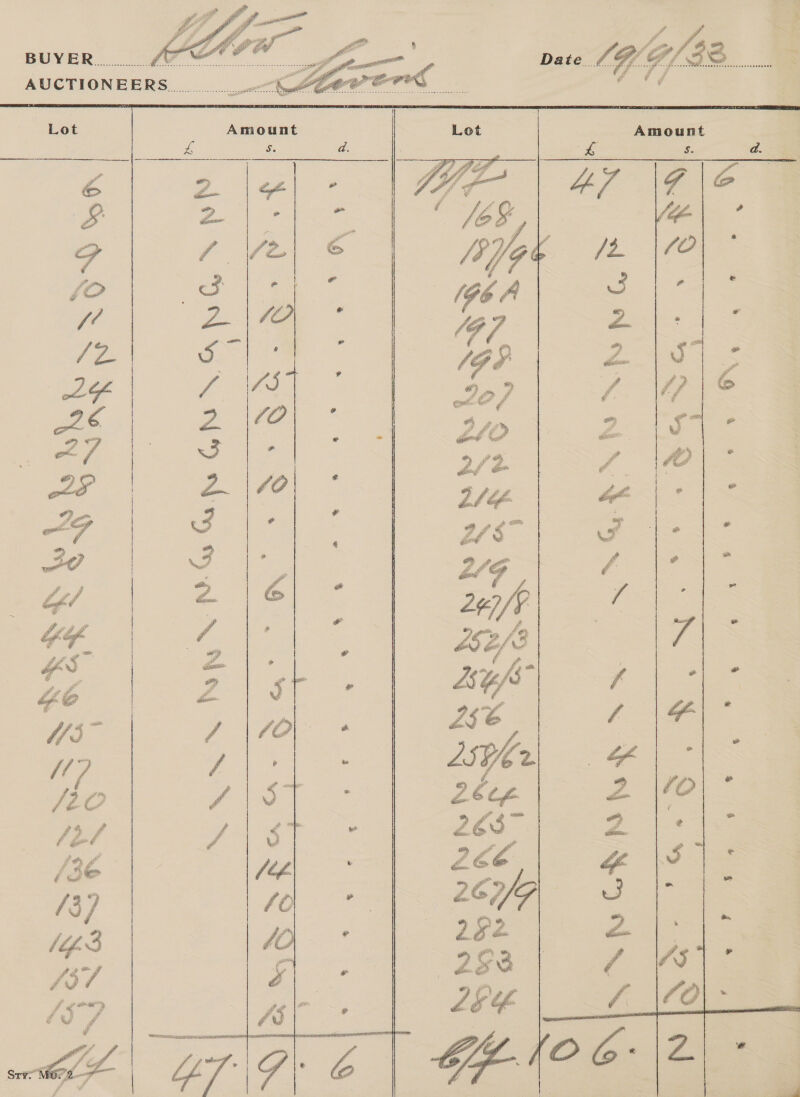 BUYER
Date 19/9/33
AUCTIONEERS Stevens
Lot Amount Lot Amount
£ s. d. £ s. d.
6 2 4 - B/F 47 9 6
8 2 - - 168 14 -
9 1 12 6 187/96 12 10 -
10 3 - - 196A 3 - -
11 2 10 - 197 2 - -
12 5 - - 198 2 5 -
24 1 15 - 207 1 17 6
26 2 10 - 210 2 5 -
27 3 - - 212 1 10 -
28 2 10 - 214 4 - -
29 3 - - 215 3 - -
30 3 - - 219 1 - -
41 2 6 - 247/8 1 - -
44 1 - - 252/3 7 -
45 2 - - 254/5 1 - -
46 2 5 - 256 1 4 -
115 1 10 - 258/62 4 - -
117 1 - - 264 2 10 -
120 1 5 - 265 2 - -
121 1 5 - 266 4 5 -
136 14 - 267/9 3 - -
137 10 - 282 2 - -
143 10 - 283 1 15 -
151 8 - 284 1 10 -
157 15 -
C/F 47 9 6 C/F 106 2 -
STY. MO. 2